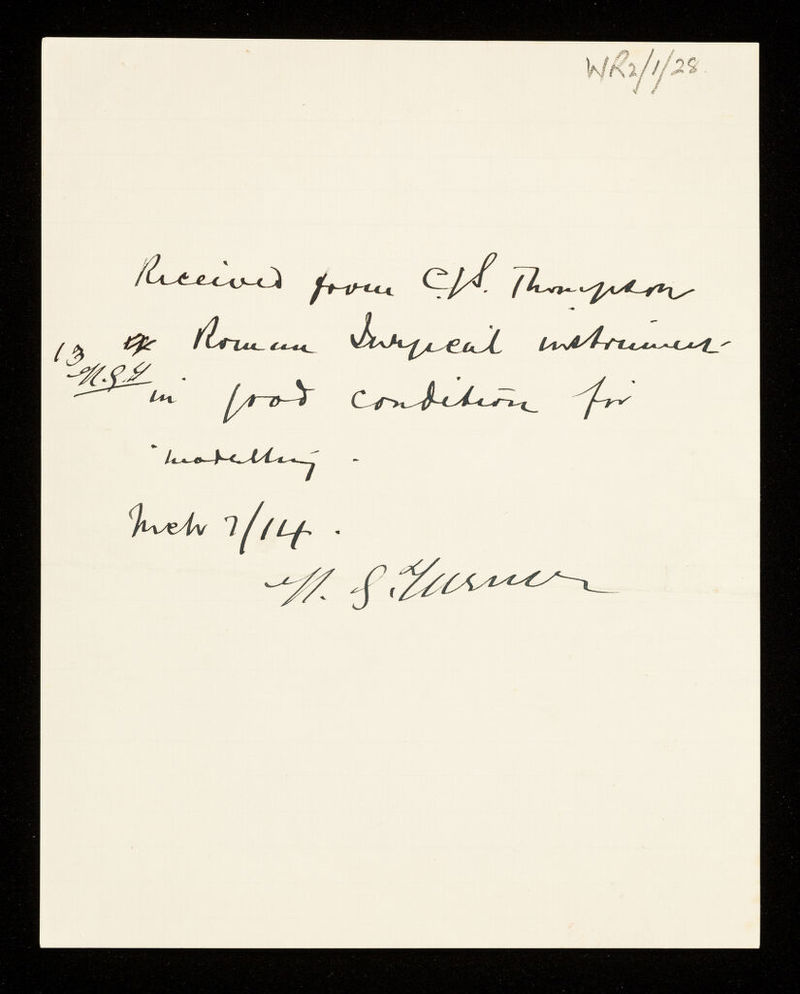 WR2/1/28
Received from C.J.S. Thompson
13 Roman Surgical instrument
in good condition for
modelling.
Mch 7/14.